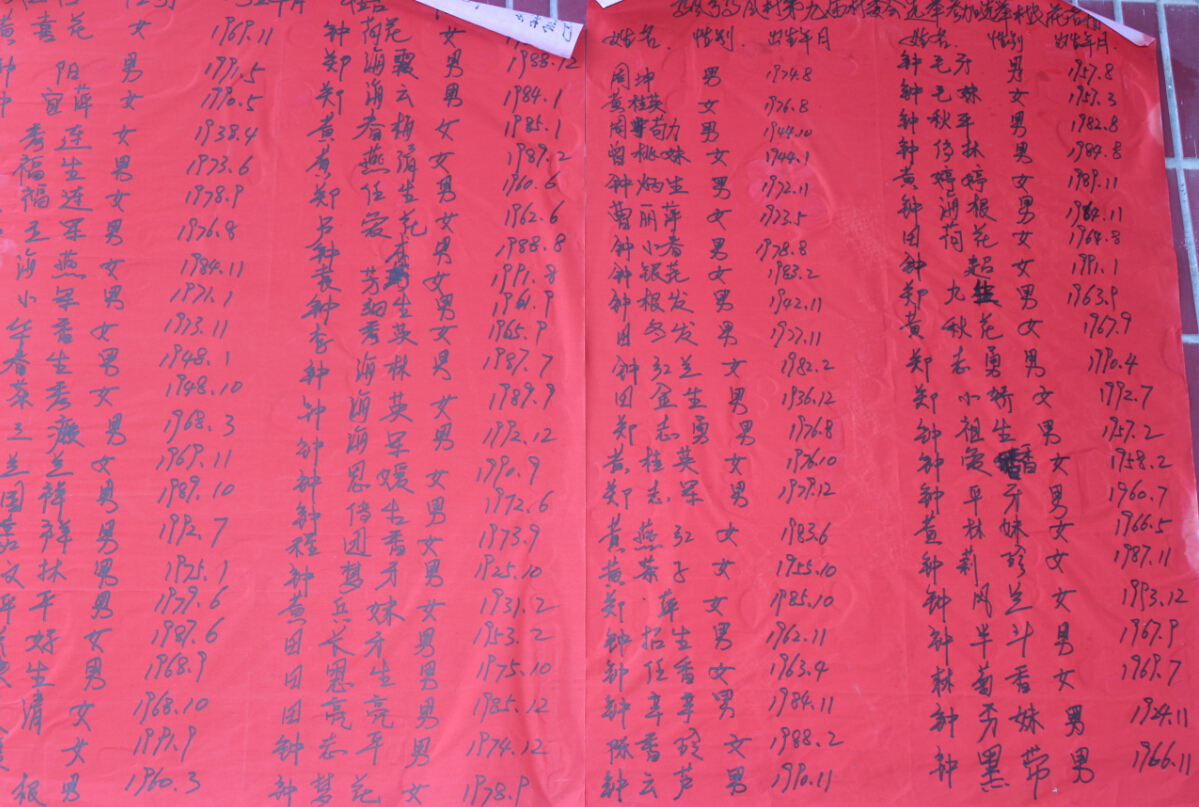 黄 喜 花 女 1969.11
钟 阳 男 1991.5
钟 宜 萍 女 1990.5
秀 连 女 1938.4
福 生 男 1973.6
福 连 女 1978.9
玉 军 男 1976.8
海 燕 女 1984.11
小 军 男 1971.1
香 女 1973.11
春 生 男 1948.1
茶 秀 女 1948.10
男 1968.3
兰 兰 女 1969.11
国 祥 男 1989.10
祥 男 1992.7
文 林 男 1975.1
平 平 男 1979.6
好 女 1987.6
生 男 1968.9
清 女 1968.10
女 1991.9
根 男 1960.3
钟 荷 花 女
郑 海 霞 男 1988.12
郑 海 云 男 1984.1
黄 春 梅 女 1985.1
黄 燕 清 女 1989.2
郑 任 生 男 1960.6
吕 爱 花 女 1962.6
钟 男 1988.8
袁 芳 女 1991.8
钟 生 男 1961.9
李 秀 英 女 1965.9
钟 海 林 男 1987.7
钟 海 英 女 1989.9
钟 海 军 男 1992.12
钟 恩 媛 女 1990.9
钟 传 生 男 1972.6
程 团 香 女 1973.9
钟 梦 牙 男 1925.10
黄 兵 妹 女 1931.2
田 长 牙 男 1953.2
田 恩 生 男 1975.10
田 亮 亮 男 1985.12
钟 志 平 男 1974.12
钟 梦 花 女 1978.9
村第九届村委会选举参加选举村民花名册
姓名. 性别. 出生年月
周 坤 男 1974.8
黄桂英 女 1976.8
周 苟力 男 1944.10
曾桃妹 女 1944.1
钟 炳生 男 1972.11
曹 丽萍 女 1973.5
钟 小春 男 1978.8
钟 银花 女 1983.2
钟 根发 男 1942.11
田 发 男 1977.11
钟 红兰 女 1982.2
田 金生 男 1936.12
郑 志勇 男 1976.8
黄 桂英 女 1976.10
郑 志军 男 1979.12
黄 燕红 女 1983.6
黄 茶子 女 1955.10
郑 萍 女 1985.10
钟 招生 男 1962.11
钟 任香 女 1963.4
钟 男 1984.11
陈 香玲 女 1988.2
钟 云芦 男 1990.11
姓名. 性别 出生年月.
钟 毛 牙 男 1957.8
钟 毛 妹 女 1957.3
钟 秋 平 男 1982.8
钟 传 林 男 1984.8
黄 婷 婷 女 1989.11
钟 海 根 男 1964.11
田 荷 花 女 1964.8
钟 超 女 1991.1
郑 九 生 男 1963.9
黄 秋 花 女 1967.9
郑 志 勇 男 1990.4
郑 小 娇 女 1992.7
钟 祖 生 男 1957.2
钟 爱 香 女 1958.2
钟 平 牙 男 1960.7
黄 林 妹 女 1966.5
钟 莉 珍 女 1987.11
钟 风 兰 女 1993.12
钟 半 斗 男 1967.9
林 菊 香 女 1969.7
钟 秀 妹 男 1924.11
钟 黑 苐 男 1966.11